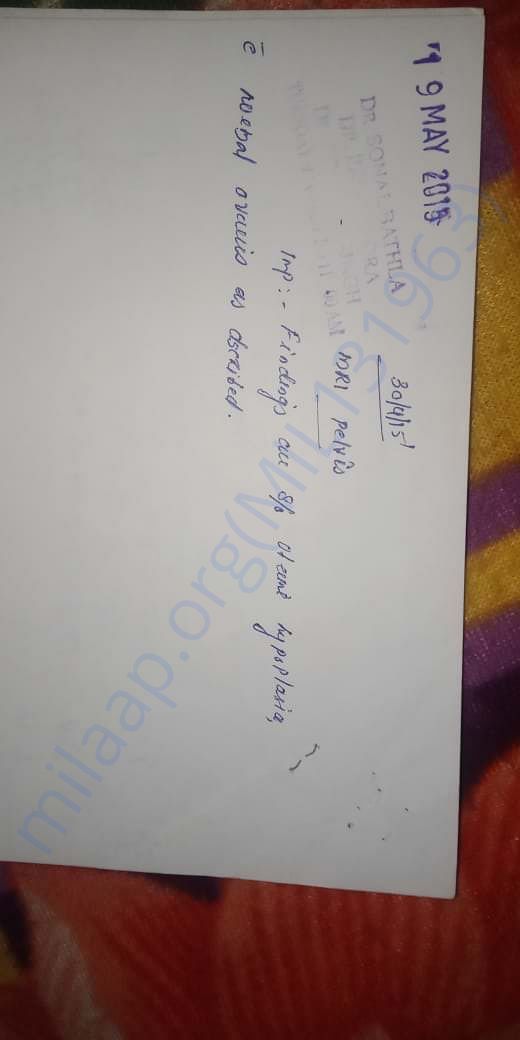 19 MAY 2015
DR SONAL BATHLA
30/4/15
MRI pelvis
Imp:- Findings are s/o uterine hypoplasia,
c̄ normal ovaries as described.
milaap.org(MIL131963)